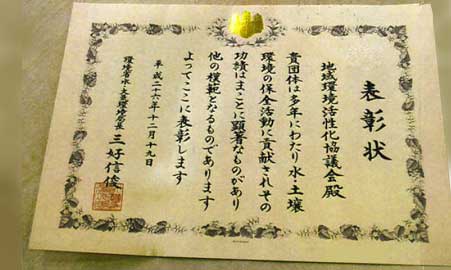 表彰状
地域環境活性化協議会殿
貴団体は多年にわたり水・土壌
環境の保全活動に貢献されその
功績はまことに顕著なものがあり
他の模範となるものであります
よってここに表彰します
平成二十六年十二月十九日
環境省水・大気環境局長 三好信俊